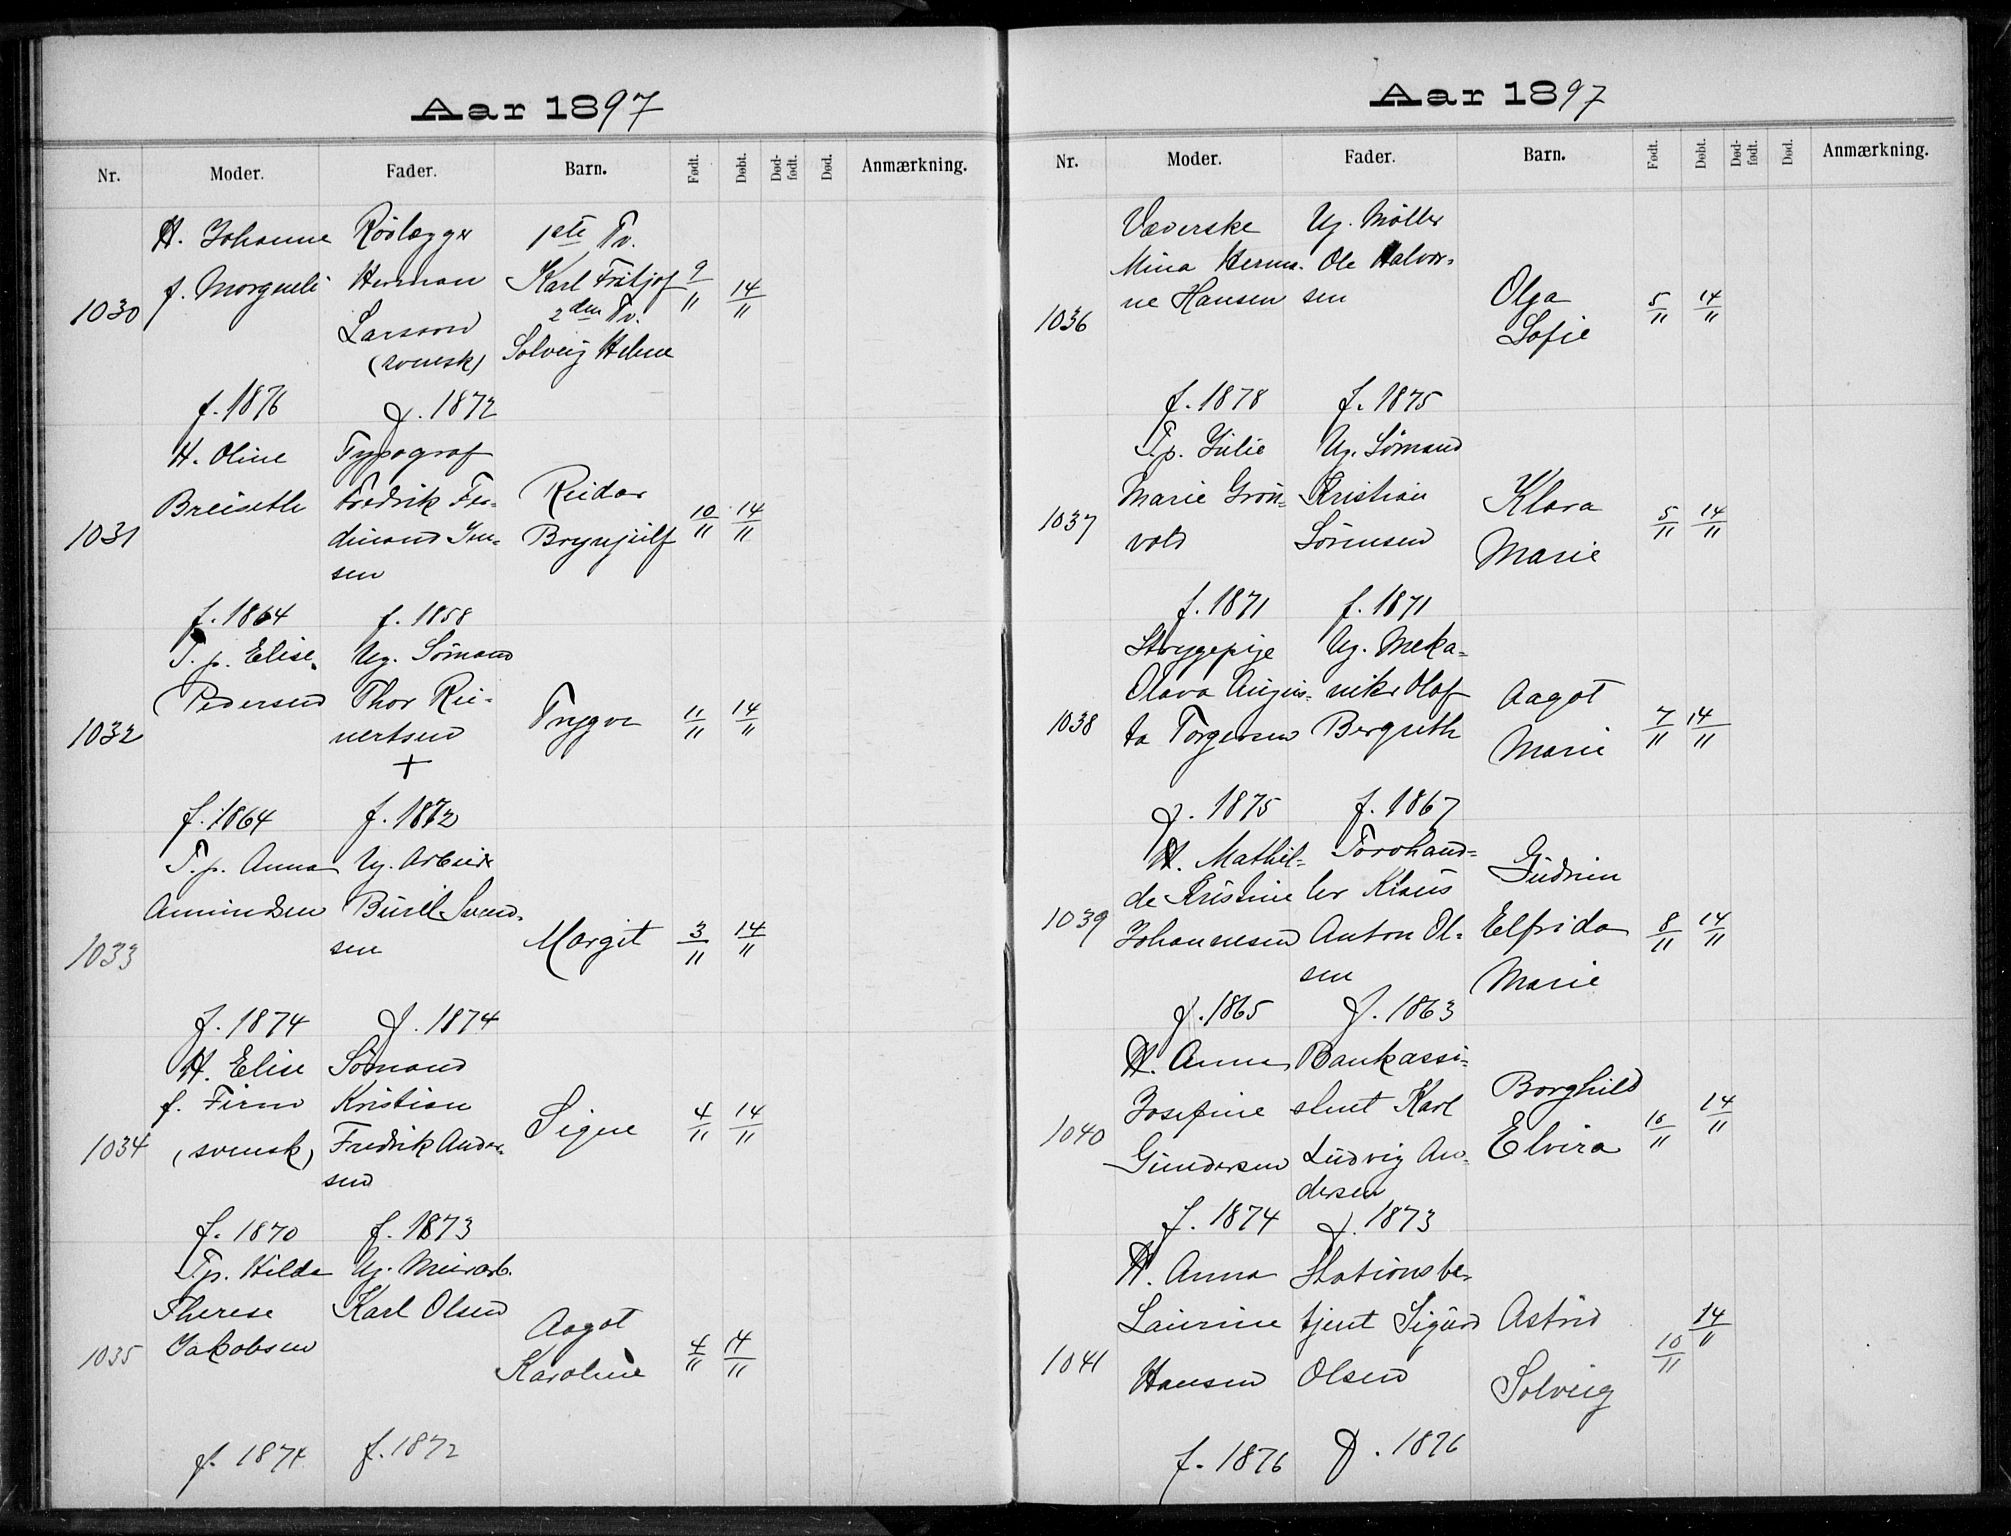 Aar 1897
Nr. Moder. Fader. Barn. Født. Døbt. Død-født. Død. Anmærkning.
1030
H. Johanne
f. Morgneli
f. 1876
Rørlægger
Herman
Larsson
(svensk)
f. 1872
1ste Tv.
Karl Fritjof
2den Tv.
Solveig Helene
9/11 14/11
1031
H. Oline
Breiseth
f. 1864
Typograf
Fredrik Fer-
dinand Jen-
sen
f. 1858
Reidar
Brynjulf
10/11 14/11
1032
T.p. Elise
Pedersen
f. 1864
Ug. Sömand
Thor Rei-
nertsen
+
f. 1872
Trygve
11/11 14/11
1033
T.p. Anna
Amundsen
f. 1874
Ug. Arbeider
Svend-
sen
f. 1874
Margit
3/11 14/11
1034
H. Elise
f. Firm
(svensk)
f. 1870
Sömand
Kristian
Fredrik Ander-
sen
f. 1873
Signe
4/11 14/11
1035
T.p. Hilda
Therese
Jakobsen
f. 1874
Ug. Murarb.
Karl Olsen
f. 1872
Aagot
Karoline
4/11 14/11
Aar 1897
Nr. Moder. Fader. Barn. Født. Døbt. Død-født. Død. Anmærkning.
1036
Væverske
Mina Herma-
ne Hansen
f. 1878
Ug. Møller
Ole Halvor-
sen
f. 1875
Olga
Sofie
5/11 14/11
1037
T.p. Julie
Marie Grøn-
vold
f. 1871
Ug. Sömand
Kristian
Sörensen
f. 1871
Klara
Marie
5/11 14/11
1038
Strygepige
Olava Augus-
ta Torgersen
f. 1875
Ug. Meka-
niker Olaf
Bergseth
f. 1867
Aagot
Marie
7/11 14/11
1039
H. Mathil-
de Kristine
Johannesen
f. 1865
Torvhand-
ler Klaus
Anton Ol-
sen
f. 1863
Gudrun
Elfrida
Marie
8/11 14/11
1040
H. Anna
Josefine
Gundersen
f. 1874
Bankassi-
stent Karl
Ludvig An-
dersen
f. 1873
Borghild
Elvira
16/11 14/11
1041
H. Anna
Laurine
Hansen
f. 1876
Stationsbe-
tjent Sigurd
Olsen
f. 1876
Astrid
Solveig
10/11 14/11